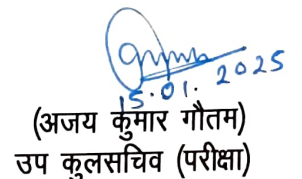 15.01.2025
(अजय कुमार गौतम)
उप कुलसचिव (परीक्षा)